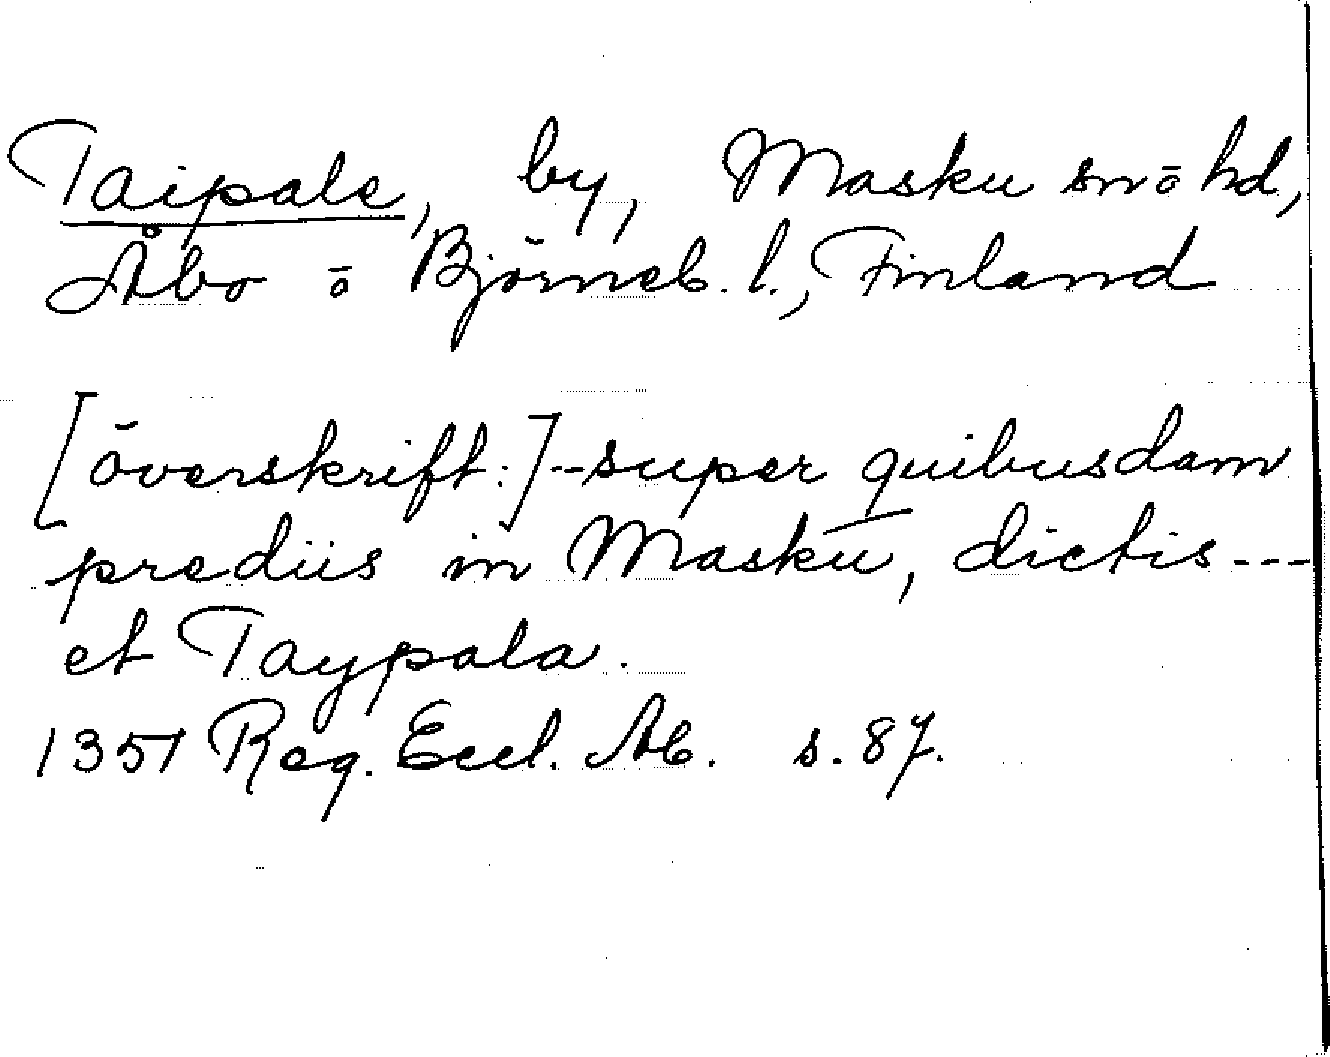 Taipale, by, Masku sn ō hd,
Åbo ō Björneb. l., Finland
[överskrift:] -- super quibusdam
prediis in Masku, dictis ---
et Taypala.
1351 Reg. Eccl. Ab. s. 87.